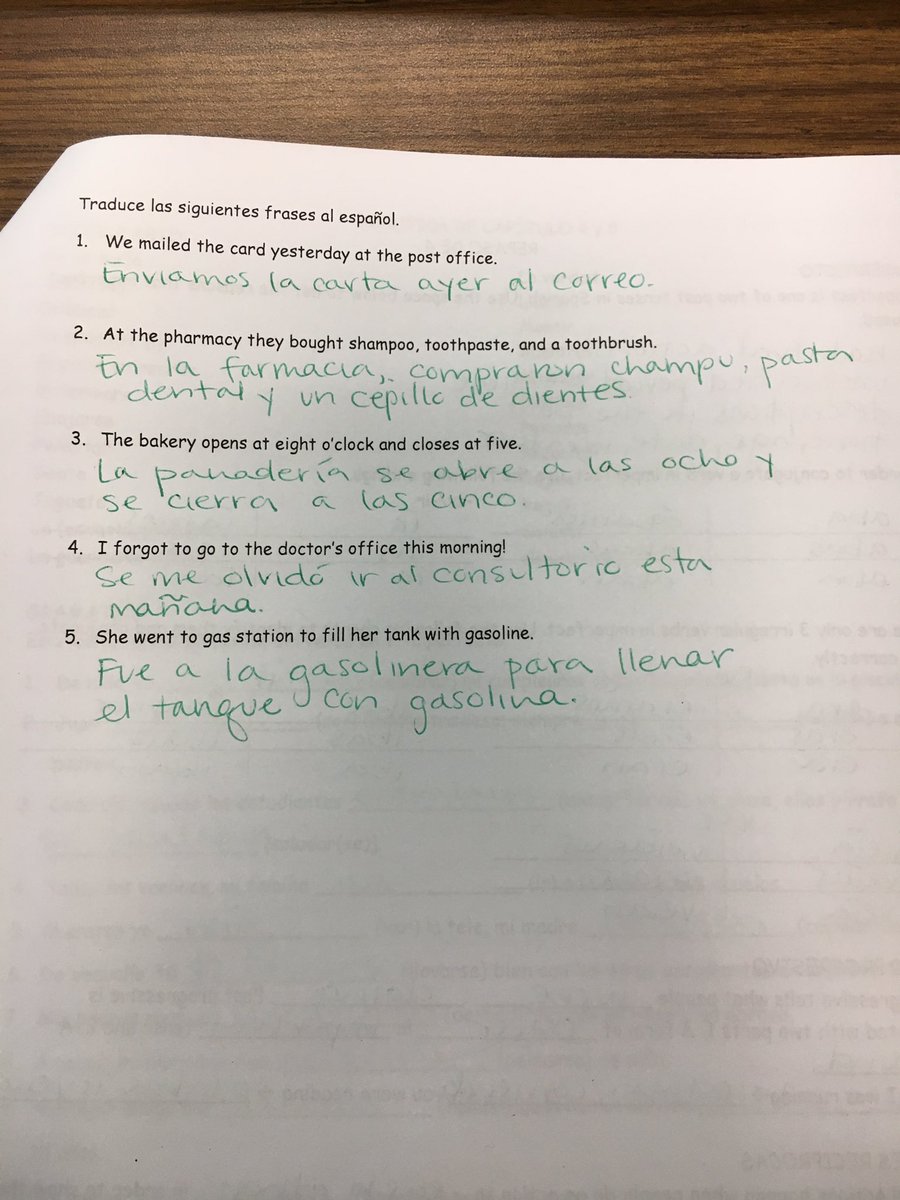 Traduce las siguientes frases al español.
1. We mailed the card yesterday at the post office.
Enviamos la carta ayer al correo.
2. At the pharmacy they bought shampoo, toothpaste, and a toothbrush.
En la farmacia, compraron champu, pasta
dental y un cepillo de dientes.
3. The bakery opens at eight o'clock and closes at five.
La panadería se abre a las ocho y
se cierra a las cinco.
4. I forgot to go to the doctor's office this morning!
Se me olvidó ir al consultorio esta
mañana.
5. She went to gas station to fill her tank with gasoline.
Fue a la gasolinera para llenar
el tanque con gasolina.